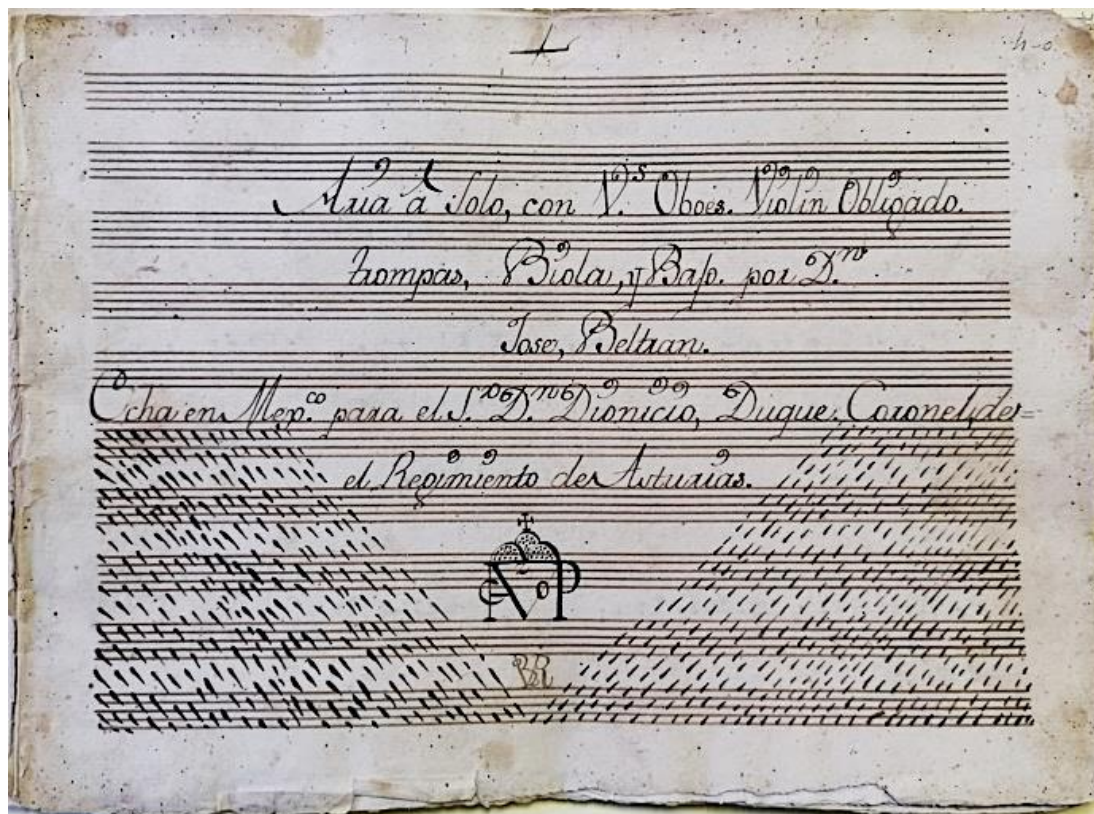 Aria á Solo, con V.s Oboes. Violin Obligado.
trompas, Biola, y Baſo. por D.n
Jose, Beltran.
Echa en Mex.co para el S.r D.n Dionicio, Duque, Coronel, de=
el Regimiento de Asturias.